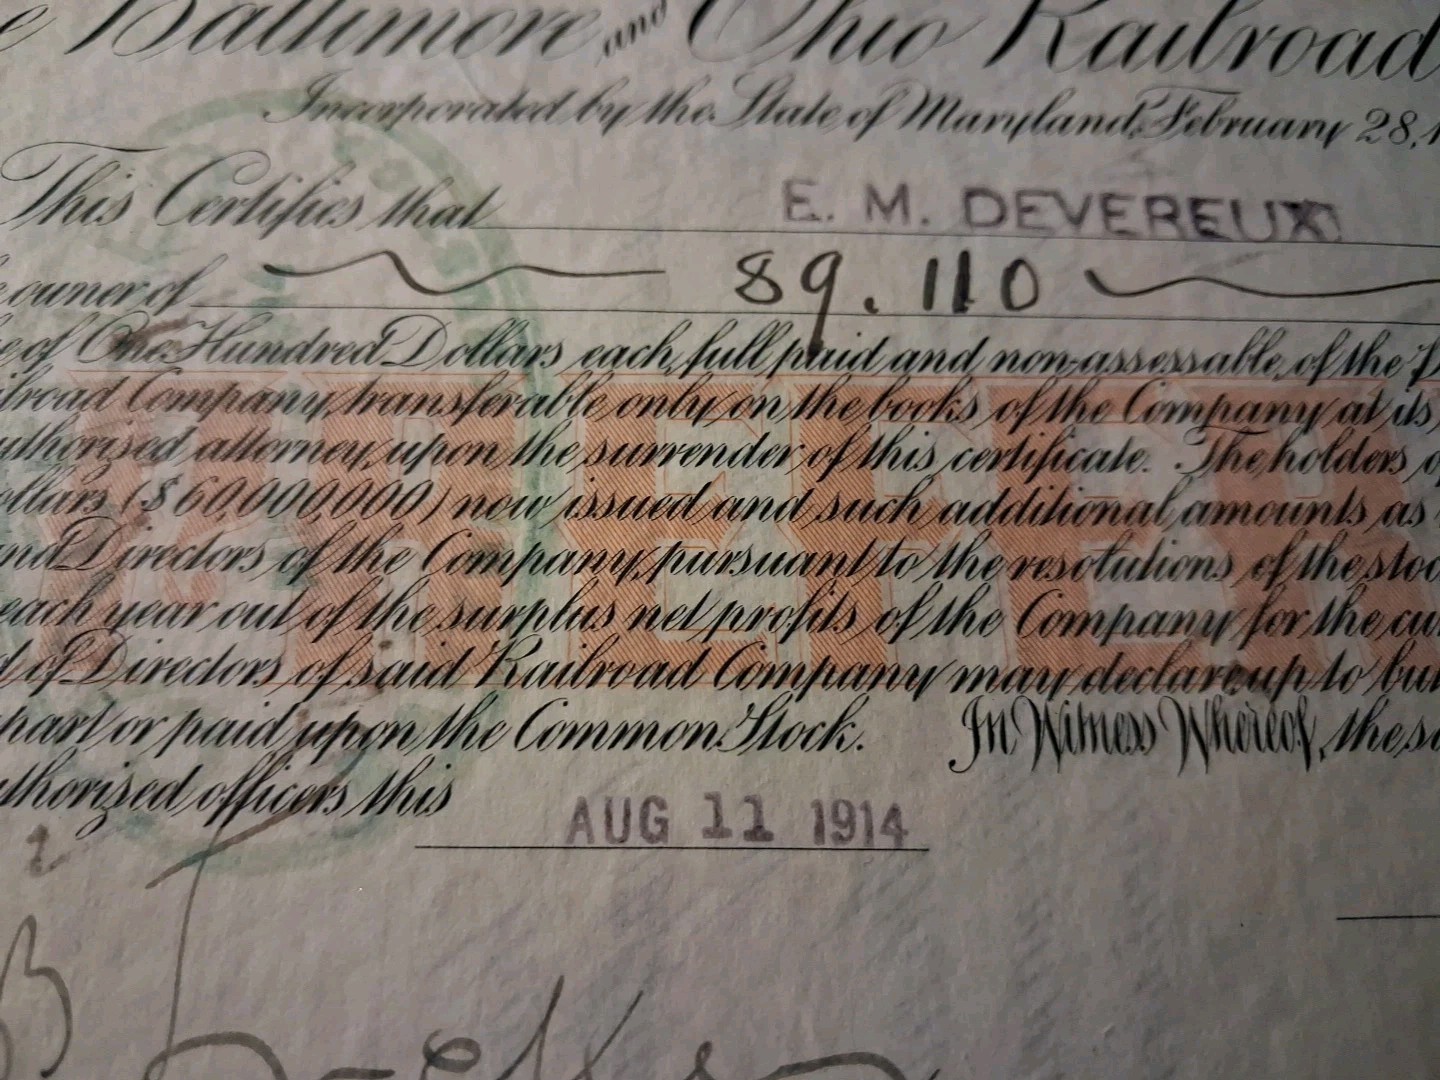 e Baltimore and Ohio Railroad
Incorporated by the State of Maryland, February 28, 1
This Certifies that E. M. DEVEREUX
owner of 89.110
e of One Hundred Dollars each, full paid and non-assessable, of the P
ilroad Company, transferable only on the books of the Company at its
uthorized attorney, upon the surrender of this certificate. The holders o
ollars ($60,000,000) now issued and such additional amounts as
nd Directors of the Company, pursuant to the resolutions of the stoc
each year out of the surplus net profits of the Company for the cu
d of Directors of said Railroad Company may declare up to but
part or paid upon the Common Stock. In Witness Whereof, the sa
uthorized officers this AUG 11 1914